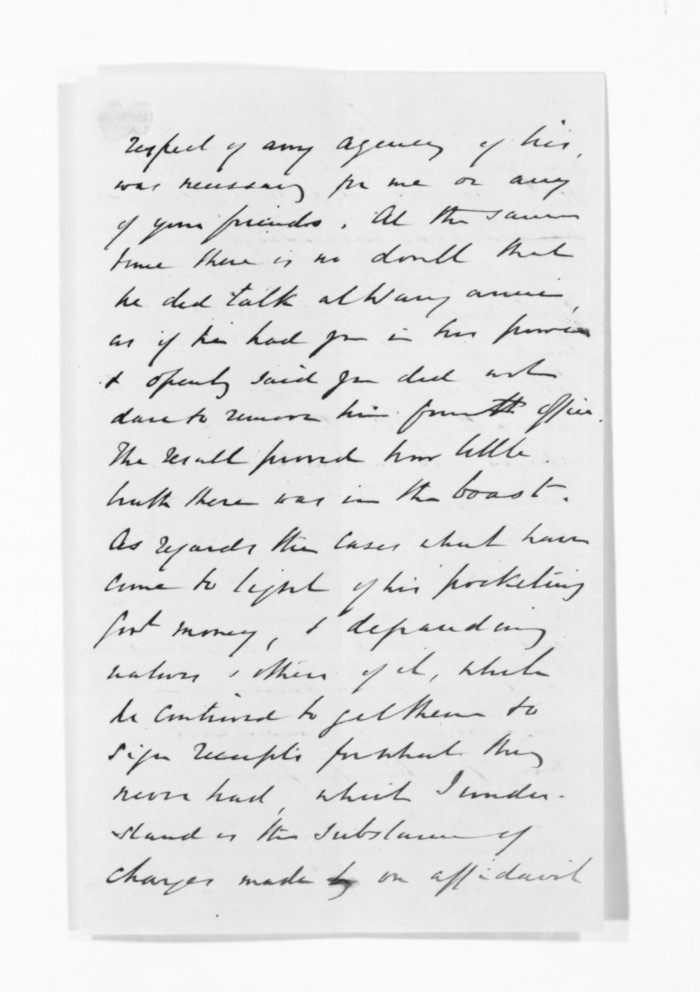 respect of any agency of his,
was necessary for me or any
of your friends. At the same
time there is no doubt that
he did talk at Wanganui,
as if he had you in his power
& openly said you did not
dare to remove him from office.
The result proved how little
truth there was in the boast.
As regards the cases which have
come to light of his pocketing
Govt money, & defrauding
natives & others of it, while
he contrived to get them to
sign receipts for what they
never had, which I under-
stand is the substance of
charges made by on affidavit